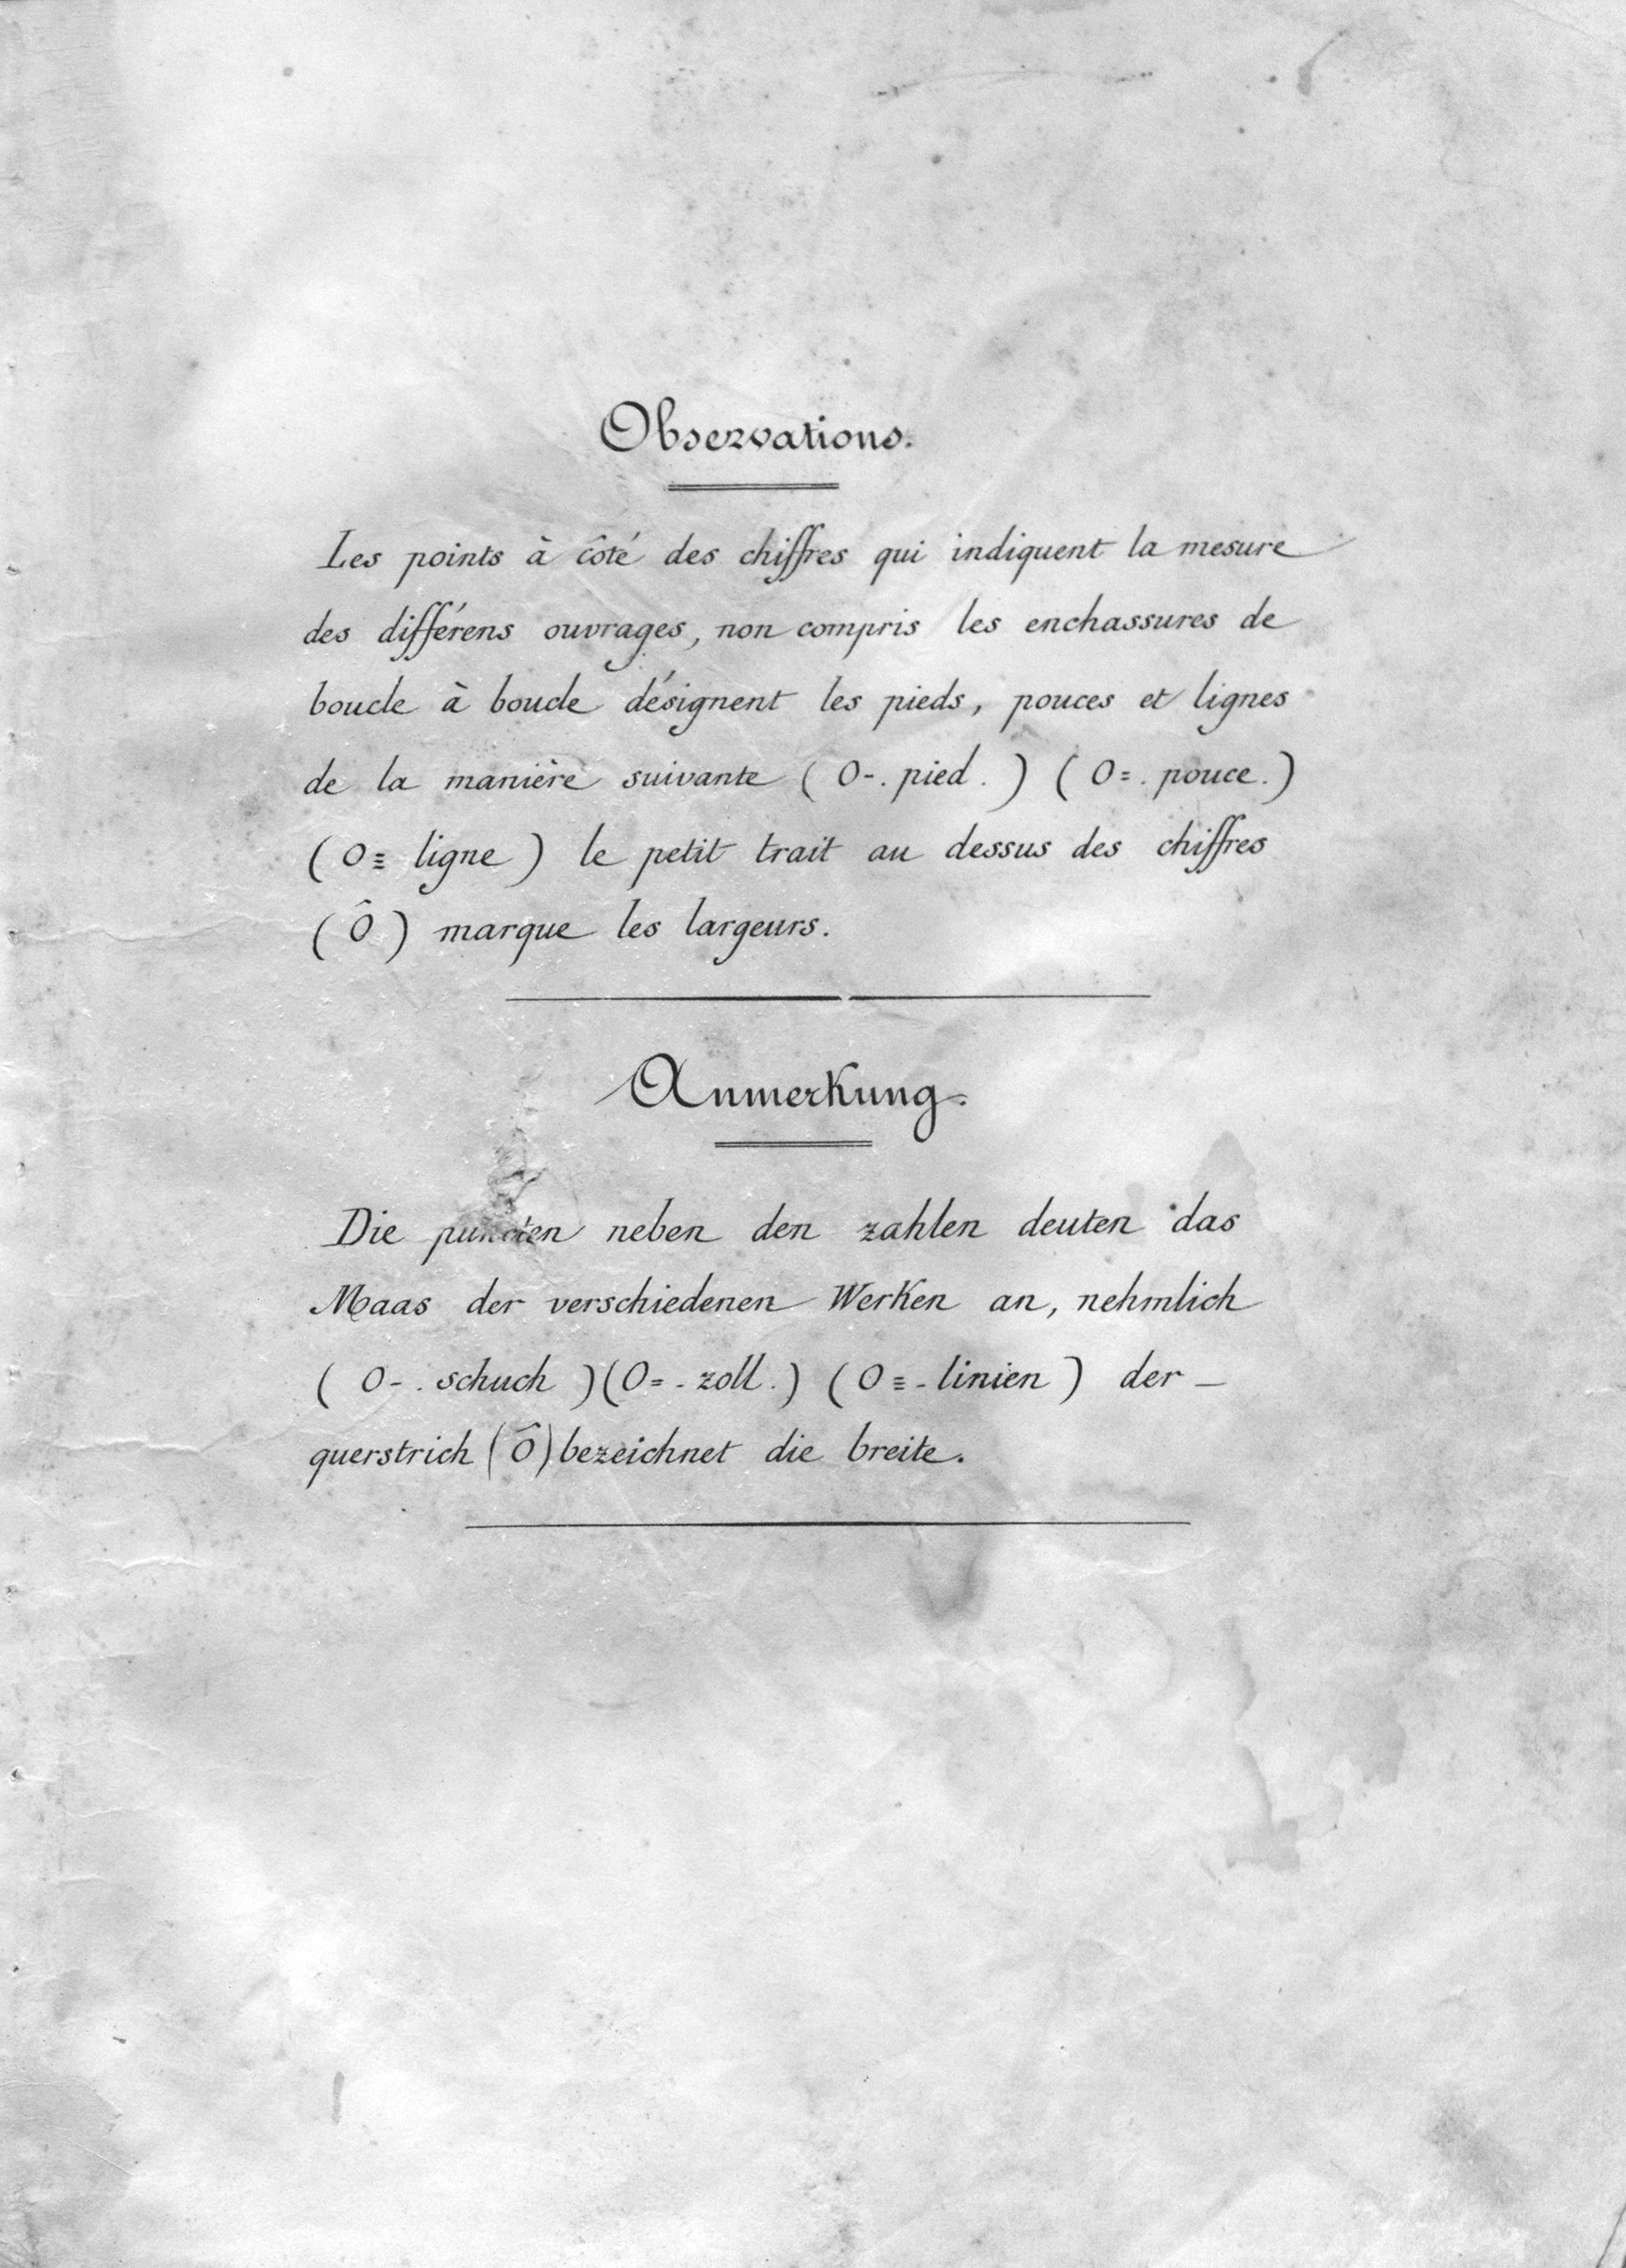 Observations.
Les points à côté des chiffres qui indiquent la mesure
des différens ouvrages, non compris les enchassures de
boucle à boucle désignent les pieds, pouces et lignes
de la manière suivante ( 0-. pied. ) ( 0=. pouce. )
( 0≡ ligne ) le petit trait au dessus des chiffres
( Ô ) marque les largeurs.
Anmerkung.
Die puncten neben den zahlen deuten das
Maas der verschiedenen Werken an, nehmlich
( 0-. schuch ) ( 0=- zoll. ) ( 0≡- linien ) der -
querstrich ( Ô ) bezeichnet die breite.